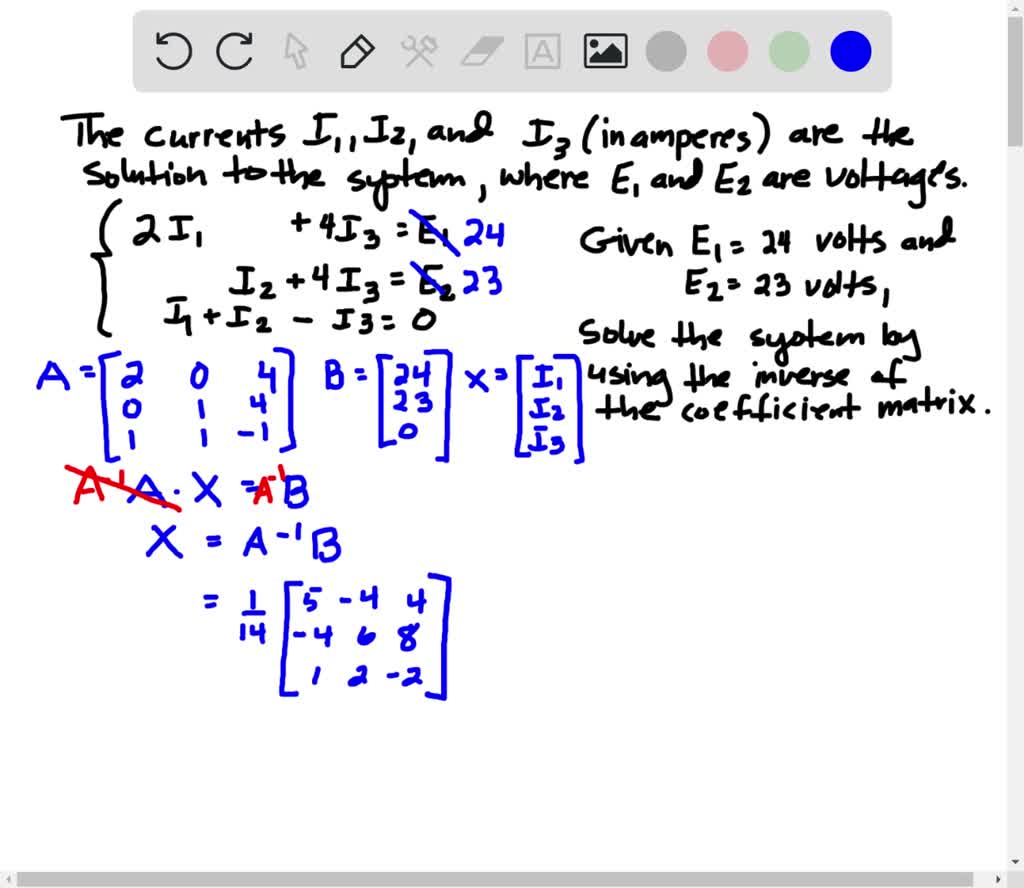 The currents I₁, I₂, and I₃ (in amperes) are the
solution to the system, where E₁ and E₂ are voltages.
{ 2I₁ + 4I₃ = E₁ 24
I₂ + 4I₃ = E₂ 23
I₁ + I₂ - I₃ = 0
Given E₁ = 24 volts and
E₂ = 23 volts,
Solve the system by
using the inverse of
the coefficient matrix.
A = [2 0 4
0 1 4
1 1 -1]
B = [24
23
0]
X = [I₁
I₂
I₃]
A⁻¹A · X = A⁻¹B
X = A⁻¹B
= 1/14 [5 -4 4
-4 6 8
1 2 -2]